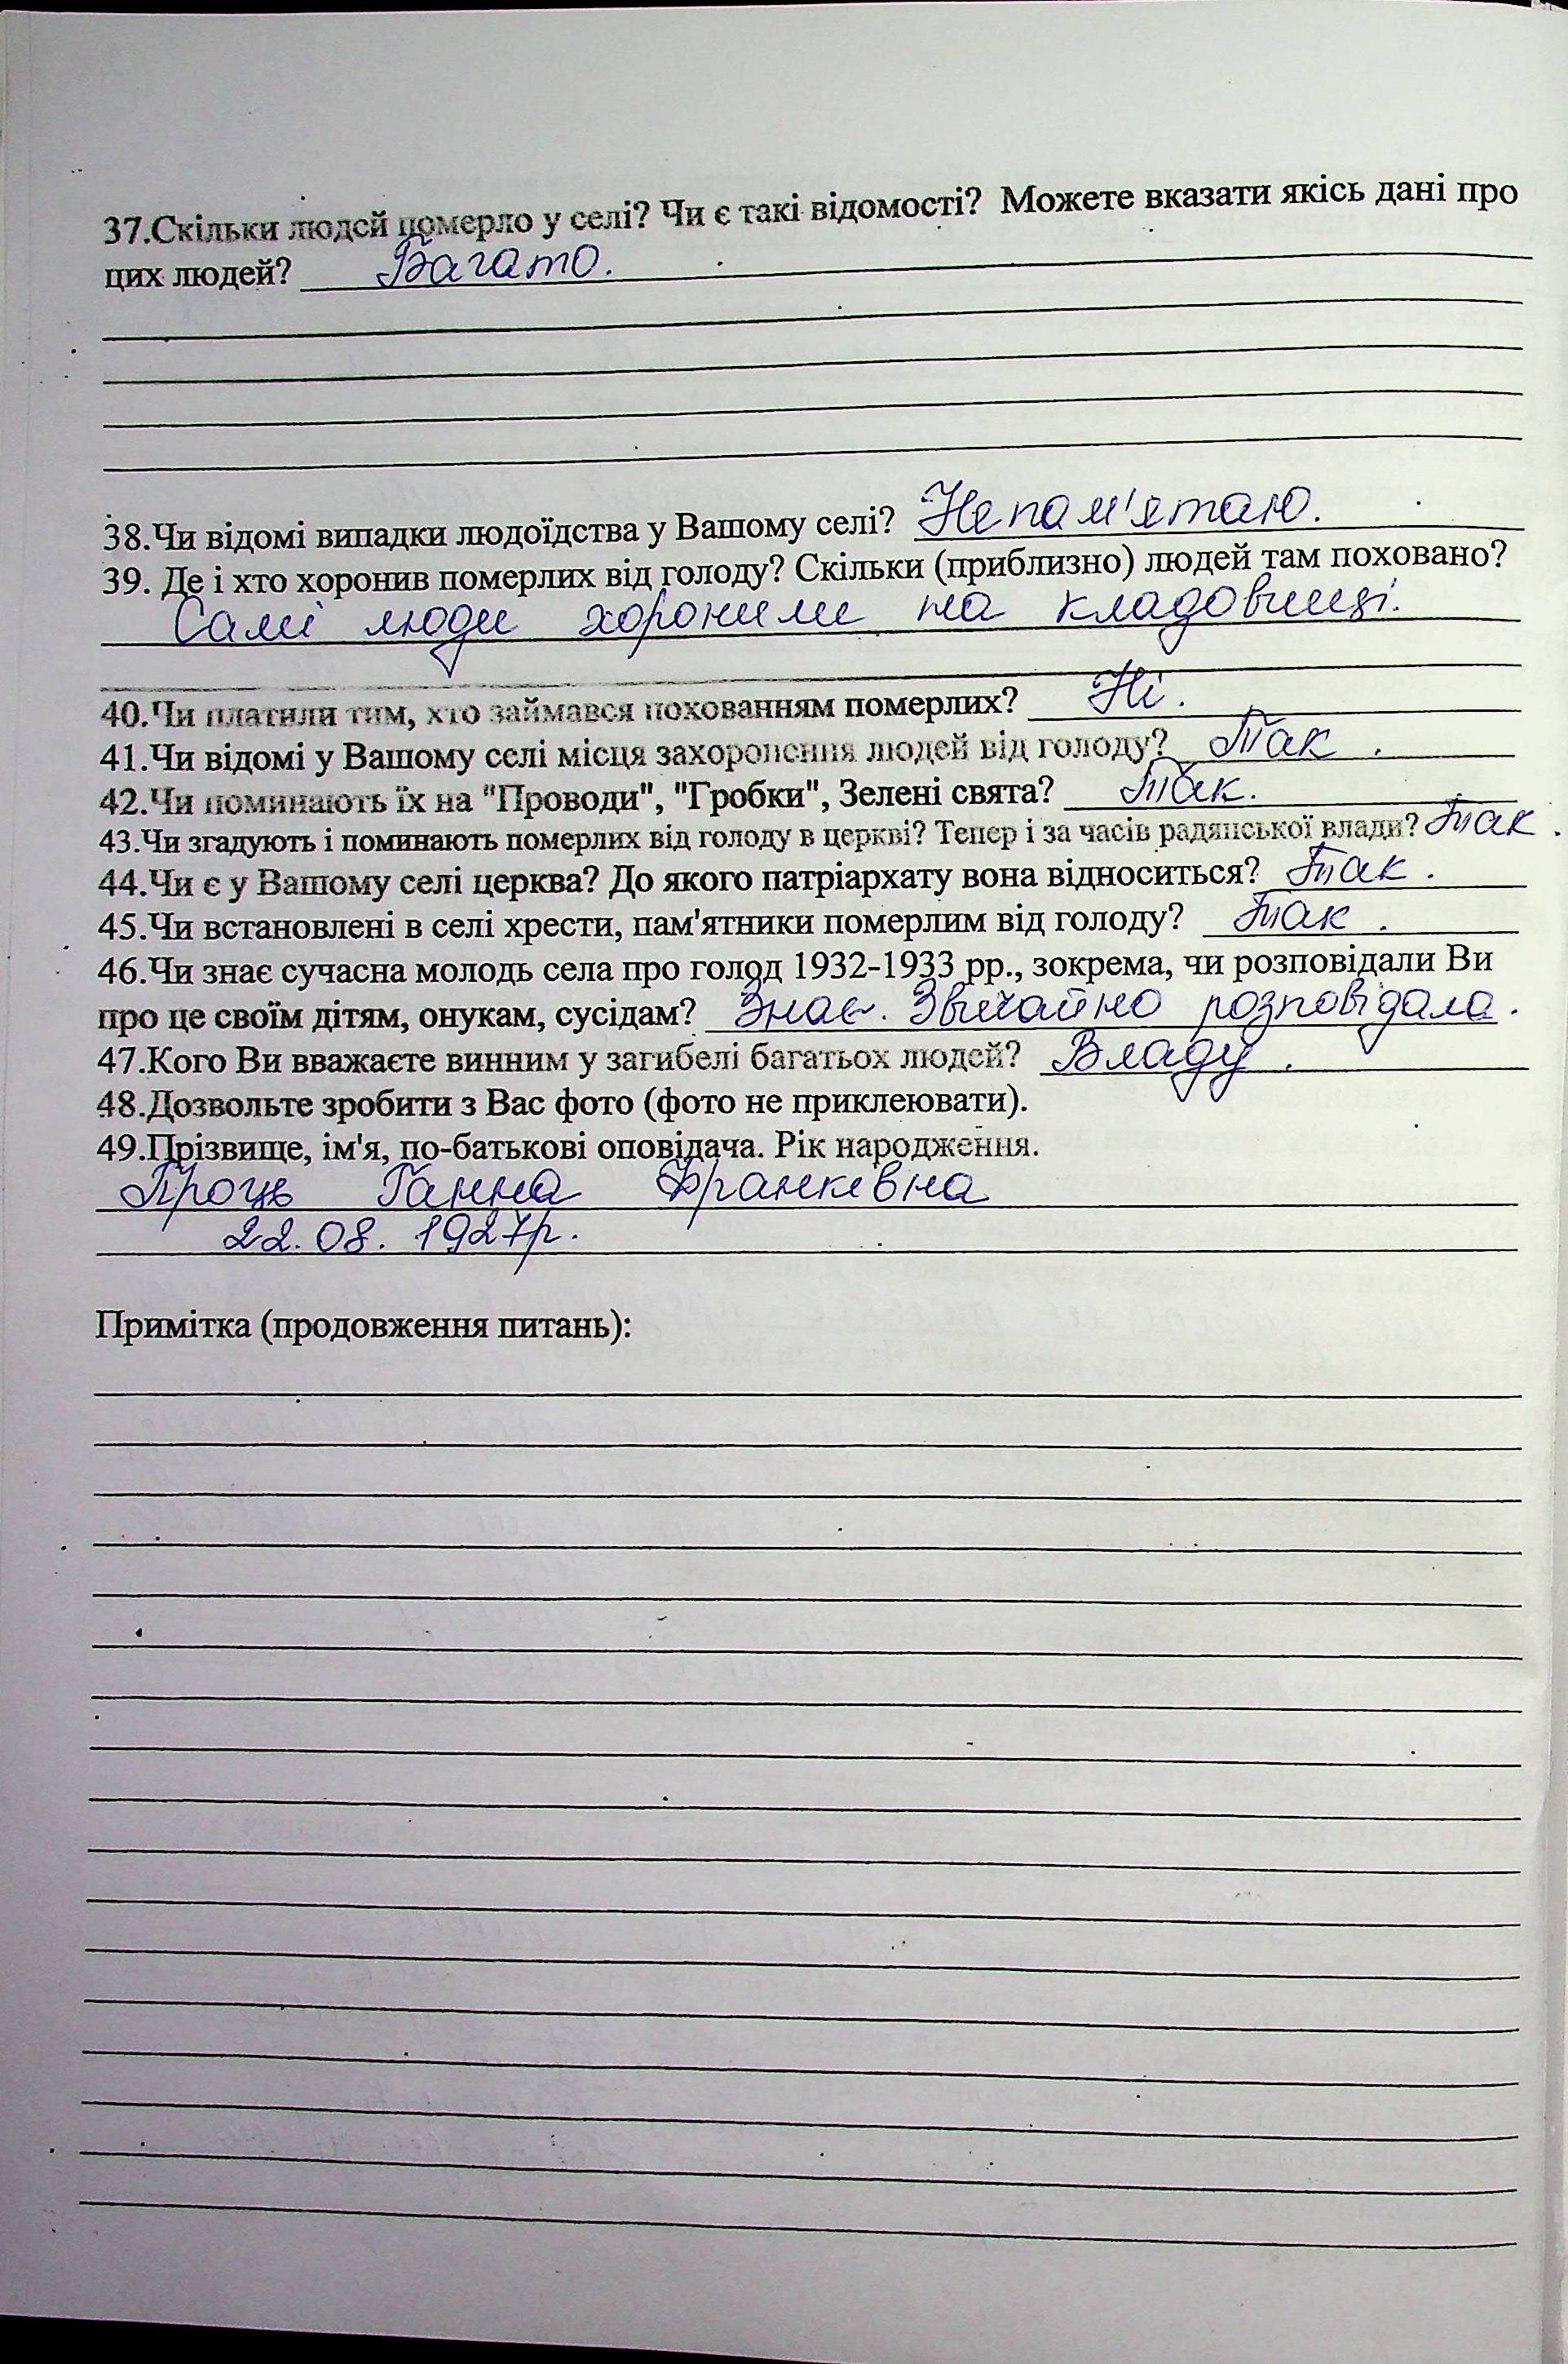 37.Скільки людей померло у селі? Чи є такі відомості? Можете вказати якісь дані про
цих людей? Багато.
38.Чи відомі випадки людоїдства у Вашому селі? Не пам'ятаю.
39. Де і хто хоронив померлих від голоду? Скільки (приблизно) людей там поховано?
Самі люди хоронили на кладовищі.
40.Чи платили тим, хто займався похованням померлих? Ні.
41.Чи відомі у Вашому селі місця захоронення людей від голоду? Так.
42.Чи поминають їх на "Проводи", "Гробки", Зелені свята? Так.
43.Чи згадують і поминають померлих від голоду в церкві? Тепер і за часів радянської влади? Так.
44.Чи є у Вашому селі церква? До якого патріархату вона відноситься? Так.
45.Чи встановлені в селі хрести, пам'ятники померлим від голоду? Так.
46.Чи знає сучасна молодь села про голод 1932-1933 рр., зокрема, чи розповідали Ви
про це своїм дітям, онукам, сусідам? Знає. Звичайно розповідала.
47.Кого Ви вважаєте винним у загибелі багатьох людей? Владу.
48.Дозвольте зробити з Вас фото (фото не приклеювати).
49.Прізвище, ім'я, по-батькові оповідача. Рік народження.
Проць Ганна Франківна
22.08.1927р.
Примітка (продовження питань):